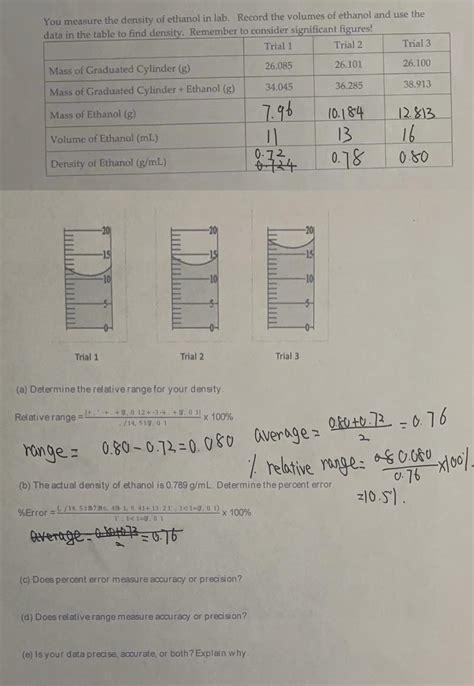 You measure the density of ethanol in lab. Record the volumes of ethanol and use the
data in the table to find density. Remember to consider significant figures!
Trial 1 Trial 2 Trial 3
Mass of Graduated Cylinder (g) 26.085 26.101 26.100
Mass of Graduated Cylinder + Ethanol (g) 34.045 36.285 38.913
Mass of Ethanol (g) 7.96 10.184 12.813
Volume of Ethanol (mL) 11 13 16
Density of Ethanol (g/mL) 0.72 0.78 0.80
0.724
20 20 20
15 15 15
10 10 10
5 5 5
0 0 0
Trial 1 Trial 2 Trial 3
(a) Determine the relative range for your density.
Relative range = x 100%
average = 0.80+0.72 / 2 = 0.76
range = 0.80 - 0.72 = 0.080
% relative range = 0.080 / 0.76 x100%
=10.5%
(b) The actual density of ethanol is 0.789 g/mL. Determine the percent error
%Error = x 100%
average = 0.80+0.72 / 2 = 0.76
(c) Does percent error measure accuracy or precision?
(d) Does relative range measure accuracy or precision?
(e) Is your data precise, accurate, or both? Explain why